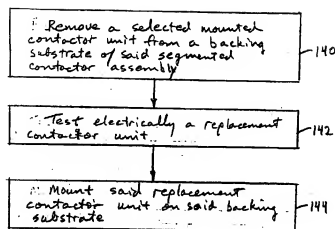 Remove a selected mounted
contactor unit from a backing
substrate of said segmented
contactor assembly
140
Test electrically a replacement
contactor unit
142
Mount said replacement
contactor unit on said backing
substrate
144